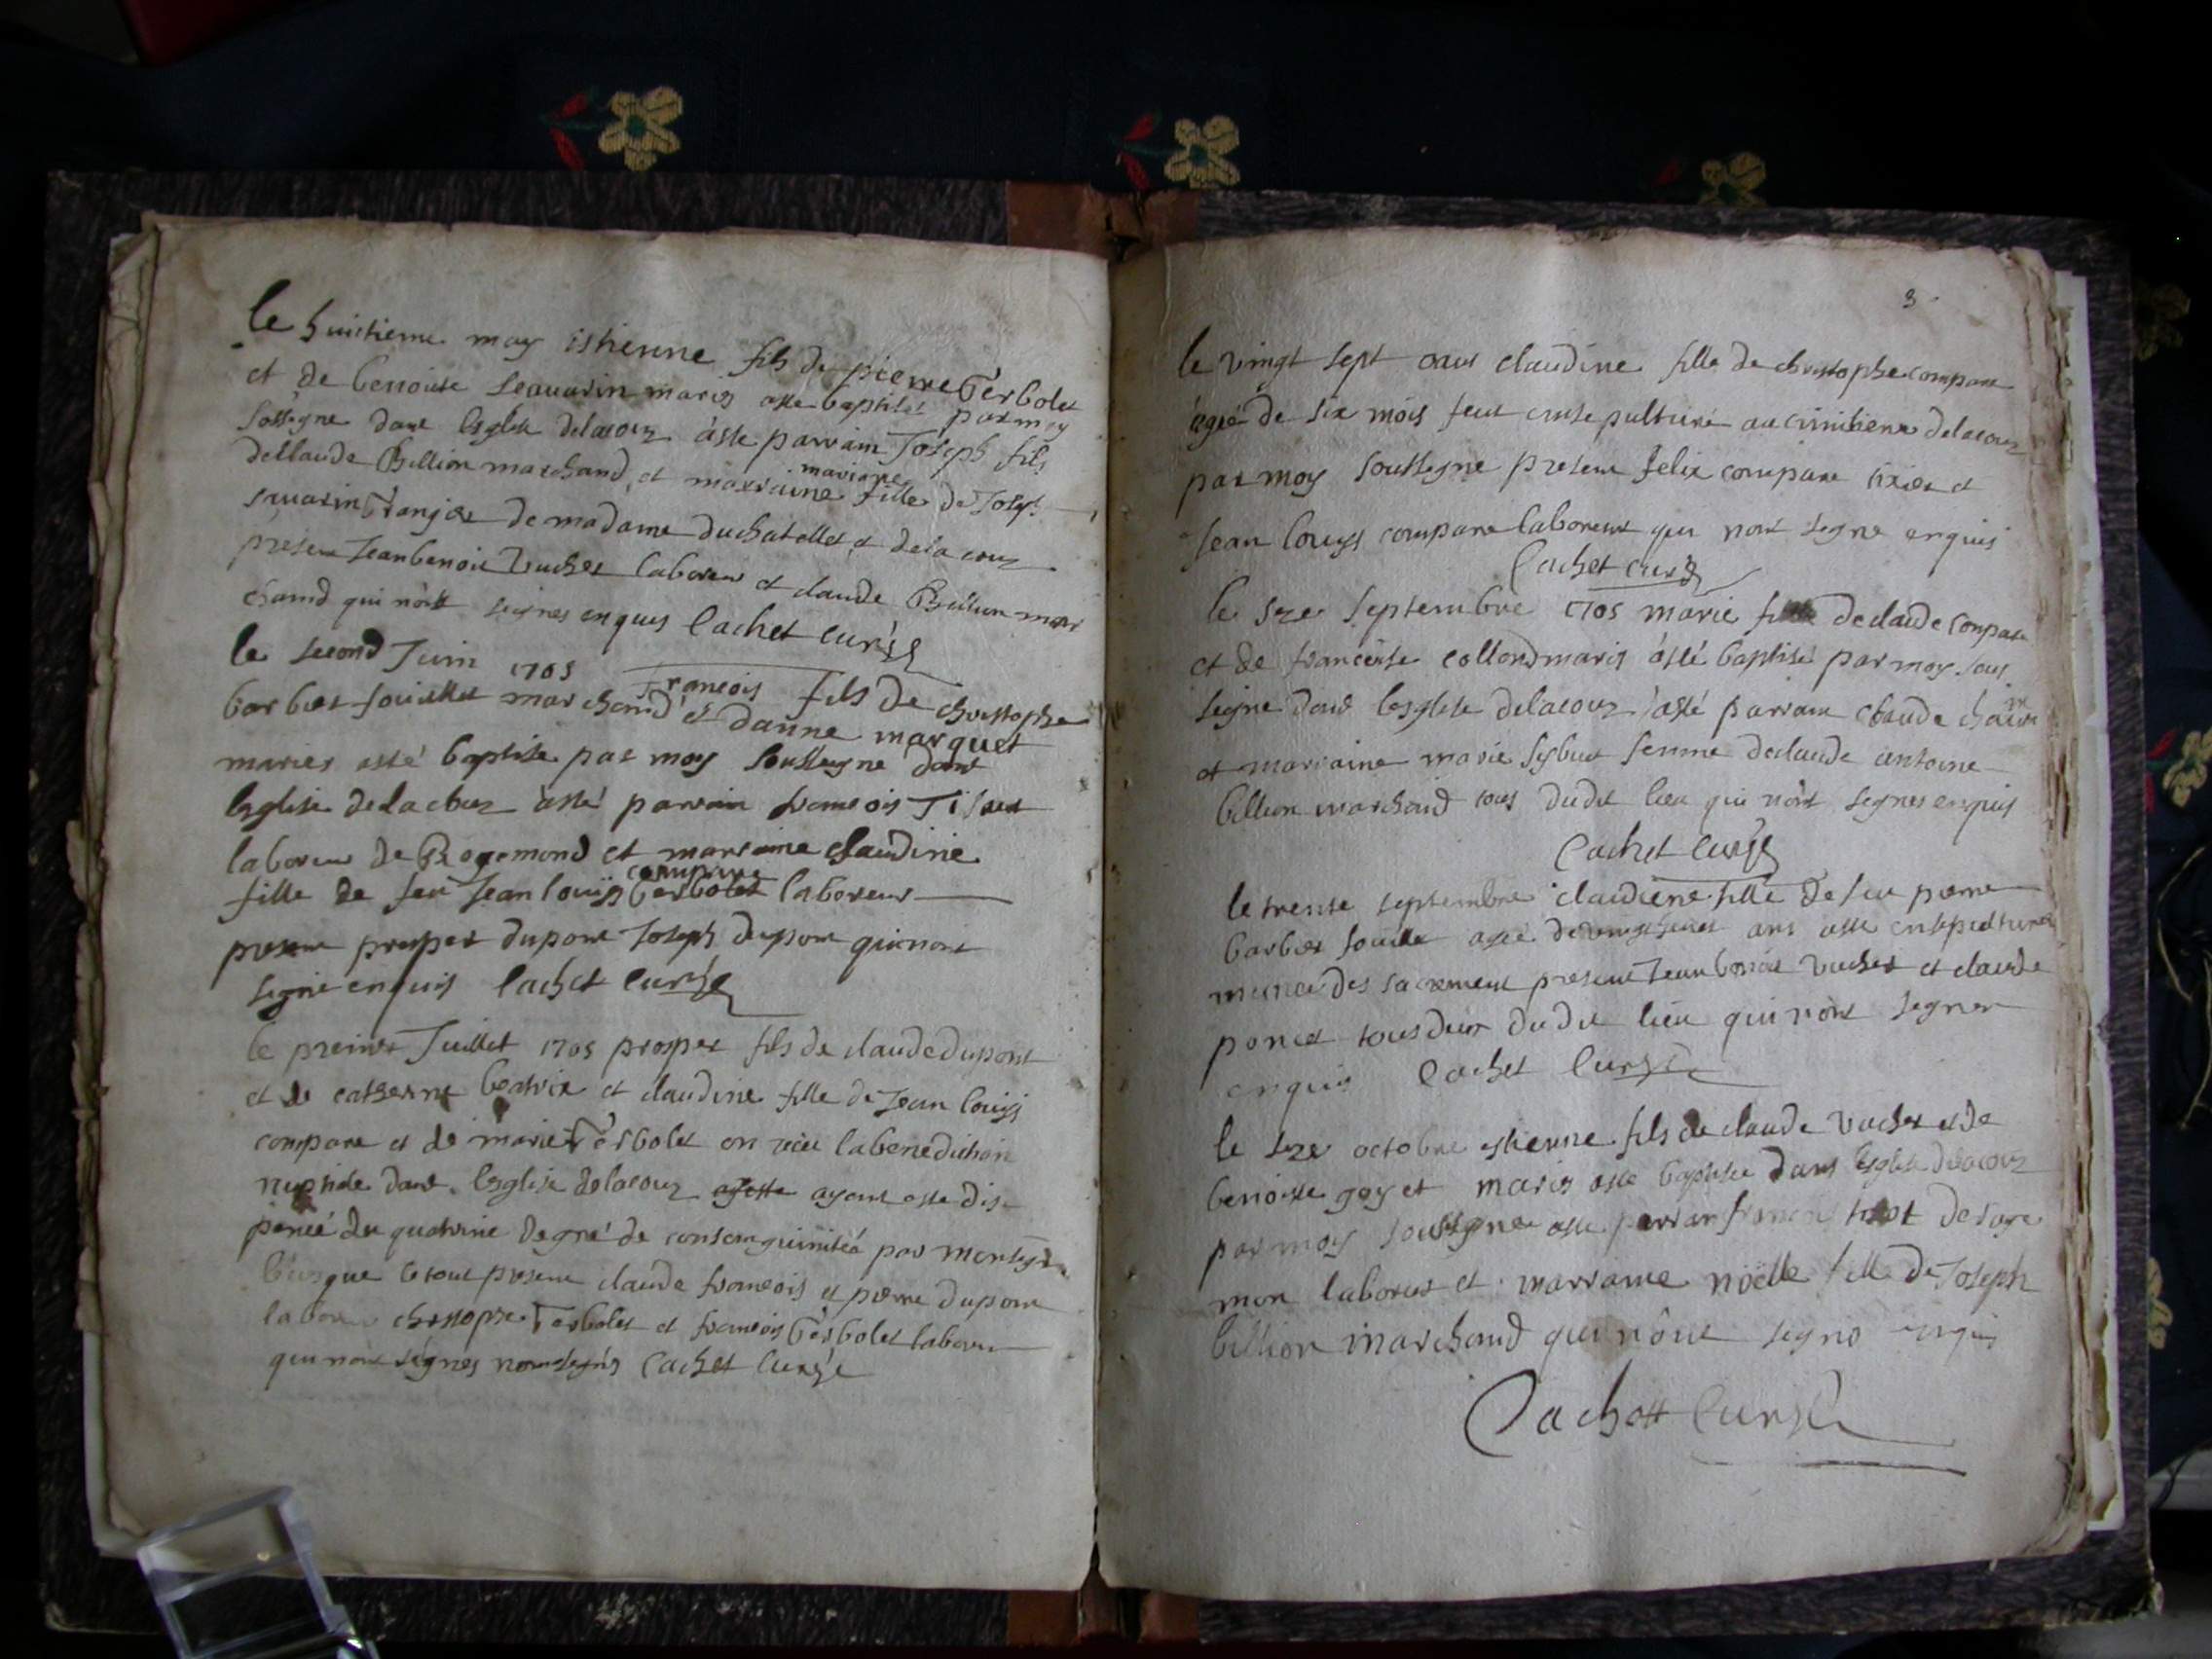 le huictieme may estienne fils de pierre Gerbolet
et de benoiste seauarin mariés aste baptisé par moy
sossigne dans leglise delacour aste parrain Joseph fils
declaude Billion marchand et marraine mariane fille de Joseph
sauarin Granjer de madame duchatellet et delacour
present Jeanbenoit vucher laboreur et claude Billion mar
chand qui nont signes enquis Cachet curé
le second Juin 1705 francois fils de christophe
barbier souillet marchand et danne marquet
mariés asté baptise par moy soussigne dans
leglise delacour asté parrain francois Tiset
laboreur de Rogemond et marraine claudine
fille de feu Jean louis compare Gerbolet laboreur
present prosper dupont Joseph dupont qui nont
signe enquis Cachet curé
le premier Juillet 1705 prosper fils de claude dupont
et de catherine beatrix et claudine fille de Jean louis
compare et de marie Gerbolet on receu labenediction
nuptiale dans leglise delacour ayant aste dis
pencé du quatrime degré de consanguinitéé par monseg
leuesque le tout present claude francois et pierre dupont
labor christophe Gerbolet et francois Gerbolet labour
qui nont signés Cachet Curé
3
le vingt sept aout claudine fille de christophe compare
agéé de six mois feut ensepulturé au cimitiere delacour
par moy soussigne present felix compare tixier et
Jean louys compare laboreur qui nont signe enquis
Cachet curé
le sze septembre 1705 marie fille declaude Compare
et de francoise collond mariés asté baptisé par moy sous
signe dans lesglise delacour asté parrain claude
et marraine marie femme declaude antoine
billion marchand tous dudit lieu qui nont signes enquis
Cachet Curé
le trente septembre claudiene fille de feu pierre
barbier souillet agéé ans aste ensepulturé
munie des sacrement present Jean benoit vucher et claude
poncet tous deux dudit lieu qui nont signer
enquis Cachet Curé
le sze octobre estienne fils de claude vucher et de
benoiste goyet mariés aste baptisée dans leglise delacour
par moy soussigner aste parran francois de roge
mon laborer et marraine noëlle fille de Joseph
billion marchand qui nont signe enquis
Cachett Curé